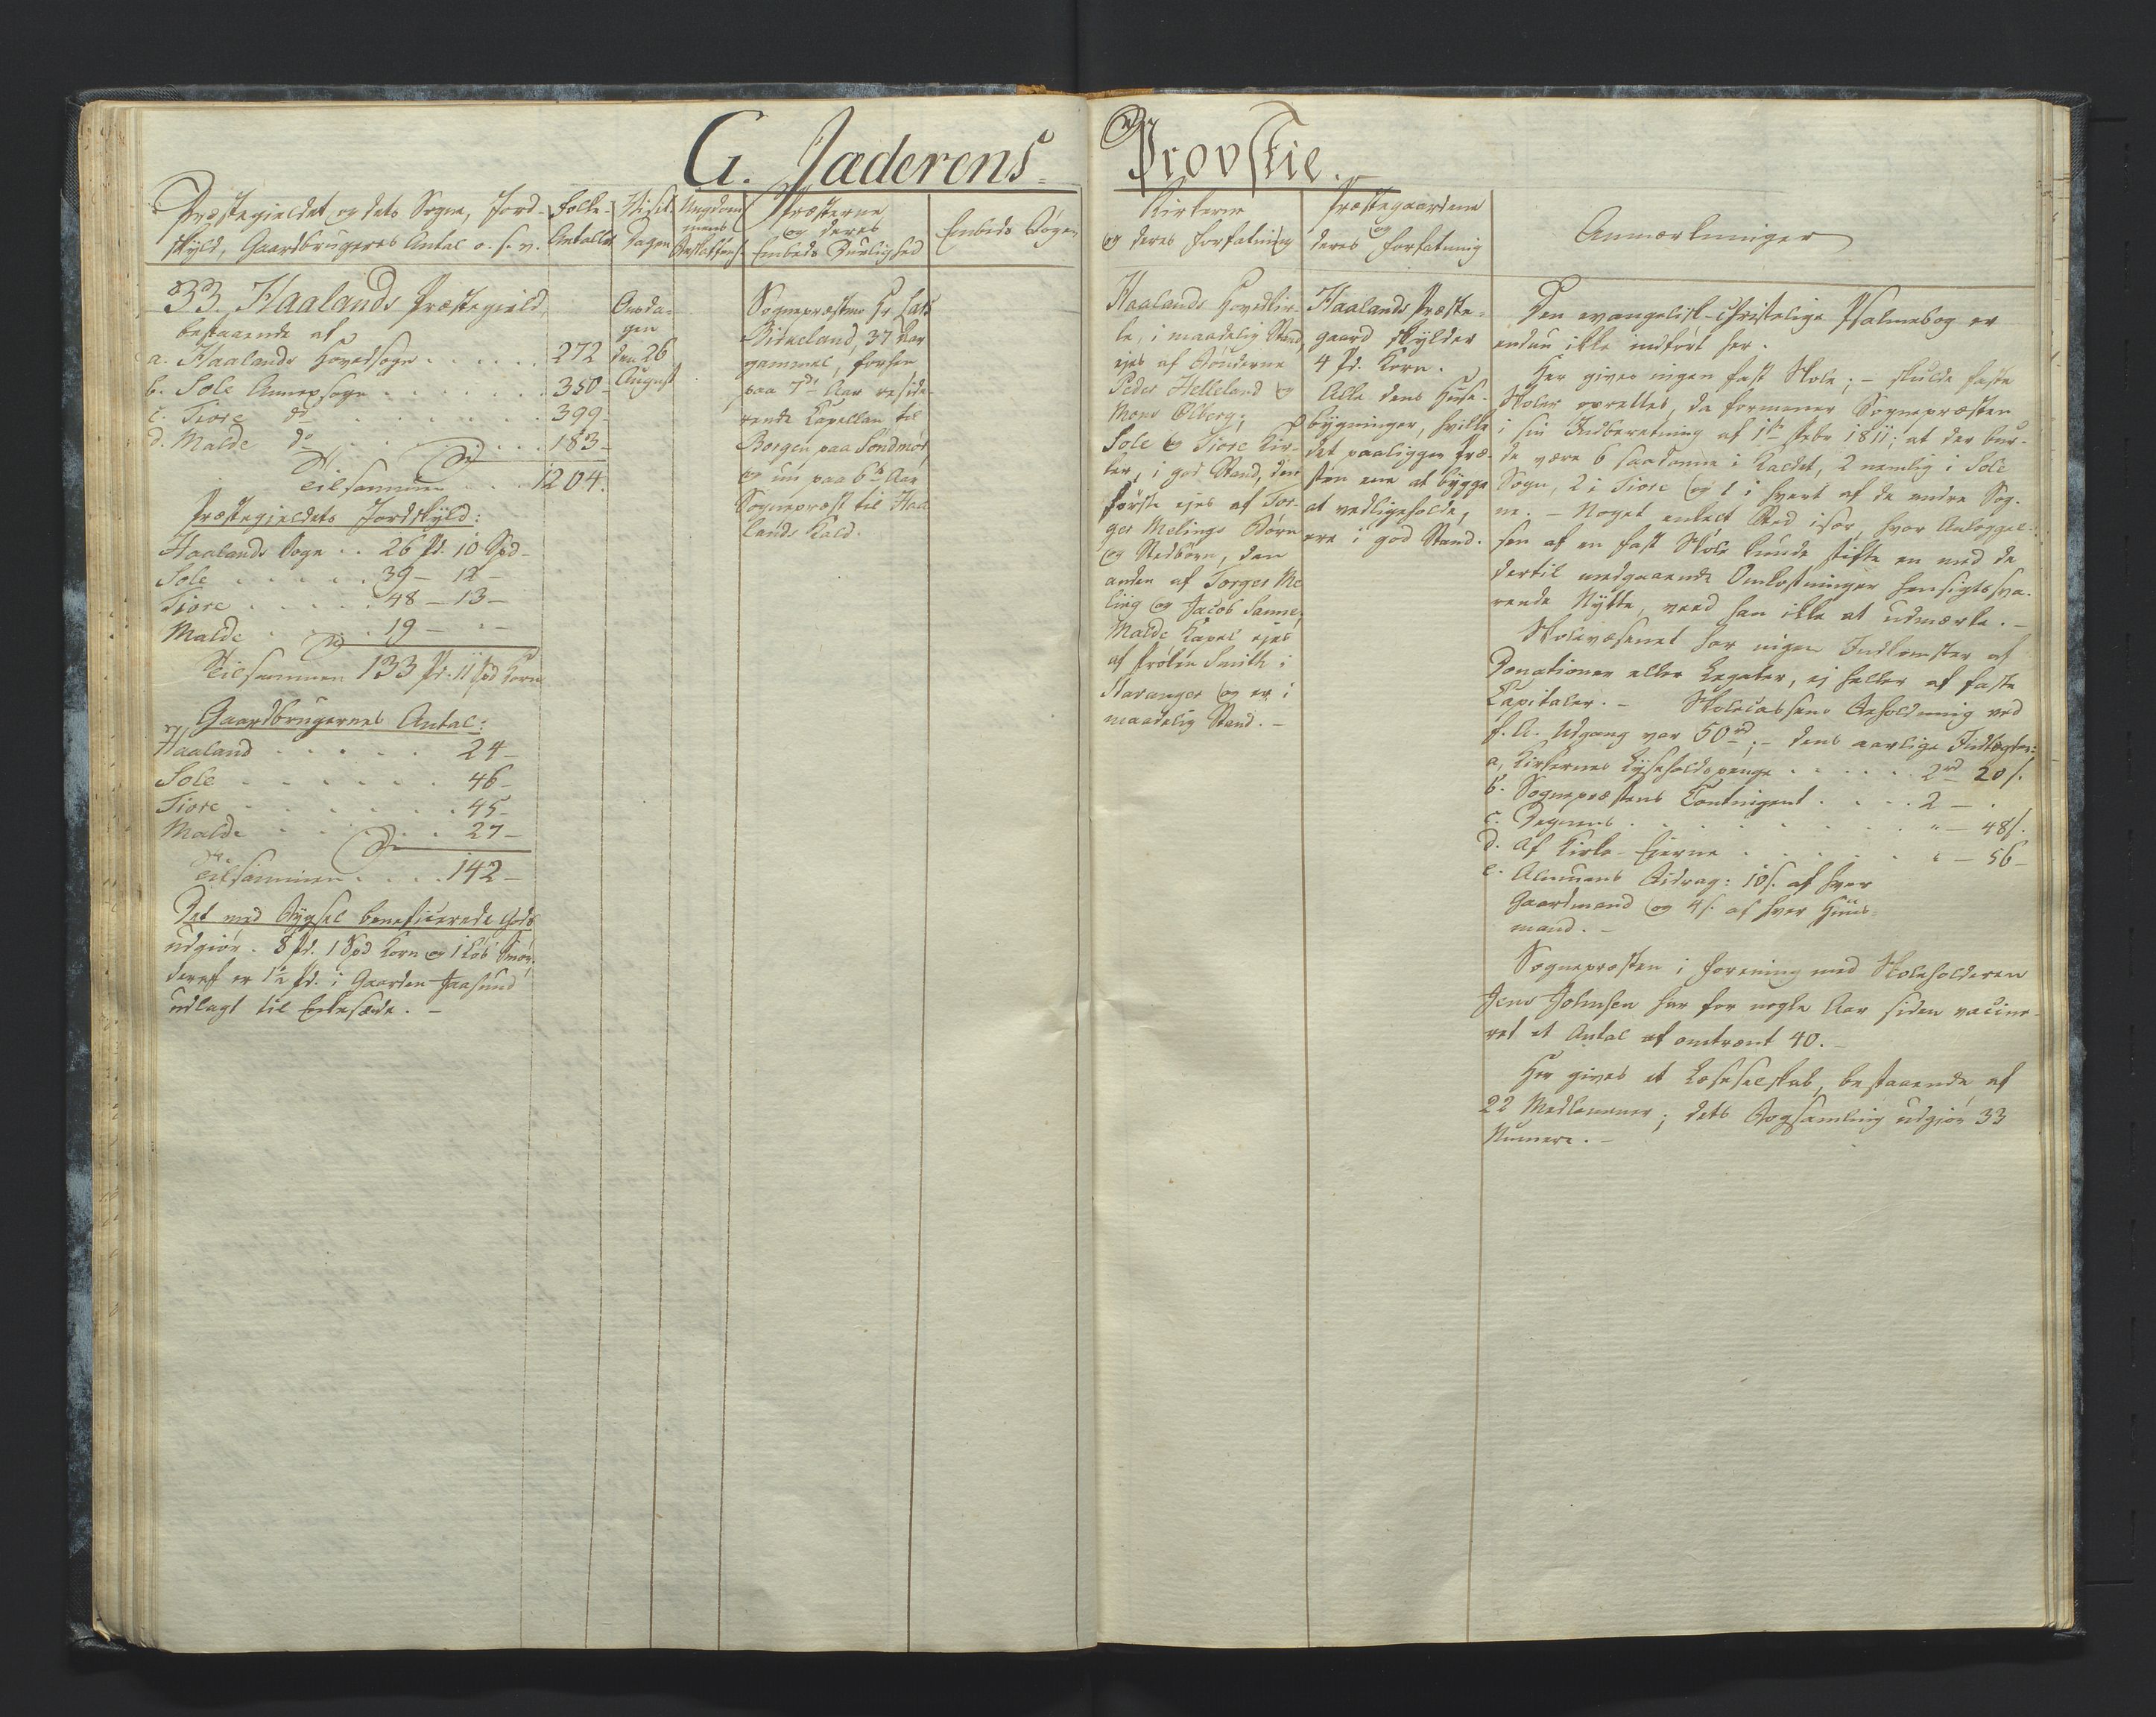 G. Jæderens
Provstie.
Præstegieldet og dets Sogne, Jord-
skyld, Gaardbrugeres Antal o. s. v.
Folke-
Antallet
Visit.
Dagen
Ungdom
mens
Præsterne
og deres
Embeds Duelighed
Embeds Bøger
33. Haalands Præstegield,
bestaaende af
a. Haalands Hovedsogn . . . . . 272
b. Sole Annexsogn . . . . . 350 -
c. Tiore do . . . . . 399 -
d. Malde do . . . . . 183 -
Tilsammen . . . 1204.
Præstegieldets Jordskyld:
Haalands Sogn . . 26 Pd. 10 Spd -
Sole . . . . . 39 - 12 -
Tiore . . . . . 48 - 13 -
Malde . . . . 19 - " -
Tilsammen 133 Pd. 11 Spd Korn
Gaardbrugernes Antal:
Haaland . . . . . 24 -
Sole . . . . . . 46 -
Tiore . . . . . . 45 -
Malde . . . . . 27 -
Tilsammen . . . . 142 -
Det med Bygsel beneficerede Gods
udgiør. 8 Pd. 1 Spd Korn og 1 Løb Smør;
deraf er 1½ Pd. i Gaarden Jaasund
udlagt til Enkesæde. -
Onsda-
gen
den 26
August
Sognepræsten Hr. Lars
Birkeland, 37 Aar
gammel, forhen
paa 7de Aar reside-
rende Kapellan til
Borgen paa Søndmør,
og nu paa 6te Aar
Sognepræst til Haa-
lands Kald.
Kirkerne
og deres Forfatning
Præstegaardene
og
deres Forfatning
Anmærkninger
Haalands Hovedkir-
ke, i maadelig Stand,
ejes af Bønderne
Peder Helleland og
Mons Ølberg;
Sole og Tiore Kir-
ker, i god Stand, den
første ejes af Tor-
ger Melings Børn
og Stedbørn, den
anden af Torger Me-
ling og Jacob Sanne,
Malde Kapel ejes
af Frøken Smith i
Stavanger og er i
maadelig Stand. -
Haalands Præste-
gaard skylder
4 Pd. Korn.
Alle dens Huse-
bygninger, hvilke
det paaligger Præ-
sten ene at bygge
at vedligeholde,
ere i god Stand.
Den evangelisk-christelige Psalmebog er
endnu ikke indført her.
Her gives ingen fast Skole; - skulde faste
Skoler oprettes, da formener Sognepræsten
i sin Indberetning af 1ste Febr 1811, at der bur-
de være 6 saadanne i Kaldet, 2 nemlig i Sole
Sogn, 2 i Tiore og 1 i hvert af de andre Sog-
ne. - Noget enkelt Sted især, hvor Anlæggel-
sen af en fast Skole kunde stifte en med de
dertil medgaaende Omkostninger hensigtssva-
rende Nytte, veed han ikke at udmærke. -
Skolevæsenet har ingen Indkomster af
Donationer eller Legater, ej heller af faste
Capitaler. - Skolecassens Beholdning ved
f. A. Udgang var 50 rd; - dens aarlige Indtægter:
a, Kirkernes Lyseholdspenge . . . . . 2 rd 20 s.
b. Sognepræstens Contingent . . . . 2 - .
c. Degnens . . . . . . . . . " - 48 s.
d. Af Kirke-Eierne . . . . . . " - 56 -
e. Almuens Bidrag: 10 s. af hver
Gaardmand og 4 s. af hver Huus-
mand. -
Sognepræsten i Forening med Skoleholderen
Jens Johnsen har for nogle Aar siden vacine-
ret et Antal af omtrent 40. -
Her gives et Læseselskab, bestaaende af
22 Medlemmer; dets Bogsamling udgiør 33
Numere. -